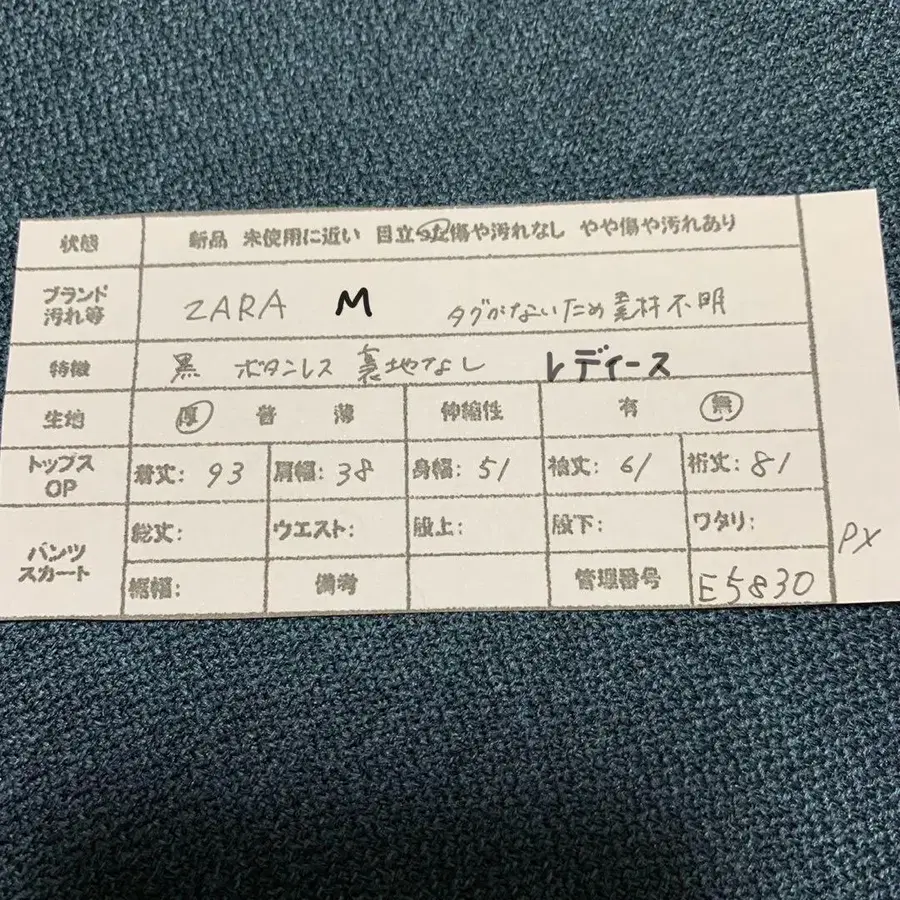 状態 新品 未使用に近い 目立った傷や汚れなし やや傷や汚れあり
ブランド 汚れ等 ZARA M タグがないため素材不明
特徴 黒 ボタンレス 裏地なし レディース
生地 厚 普 薄 伸縮性 有 無
トップス OP 着丈: 93 肩幅: 38 身幅: 51 袖丈: 61 裄丈: 81
パンツ スカート 総丈: ウエスト: 股上: 股下: ワタリ:
裾幅: 備考 管理番号 E5830
PX